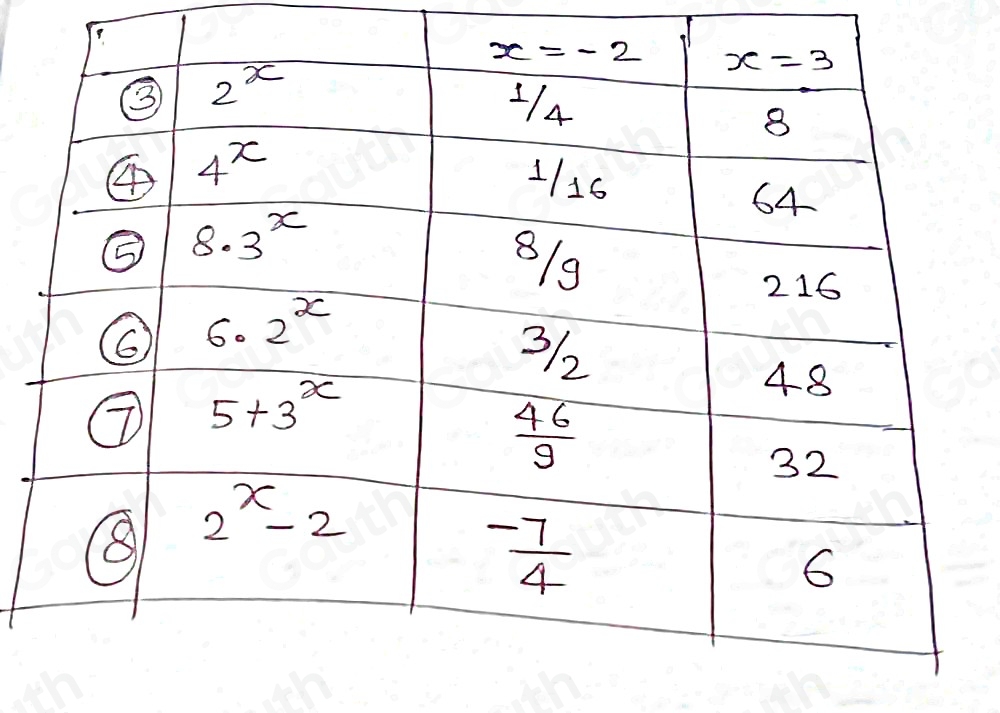 x = -2 x = 3
③ 2^x 1/4 8
④ 4^x 1/16 64
⑤ 8·3^x 8/9 216
⑥ 6·2^x 3/2 48
⑦ 5+3^x 46/9 32
⑧ 2^x-2 -7/4 6
Gauth